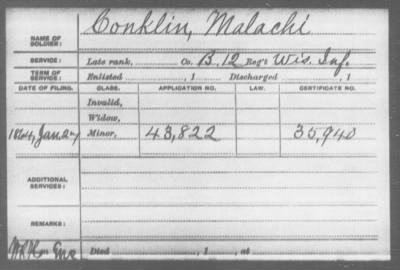 NAME OF SOLDIER: Conklin, Malachi
SERVICE: Late rank, Co. B, 12 Reg't Wis. Inf.
TERM OF SERVICE: Enlisted , 1 Discharged , 1
DATE OF FILING. CLASS. APPLICATION NO. LAW. CERTIFICATE NO.
Invalid,
Widow,
1864, Jan. 27 Minor, 43,822 35,940
ADDITIONAL SERVICES:
REMARKS:
Died , 1 , at